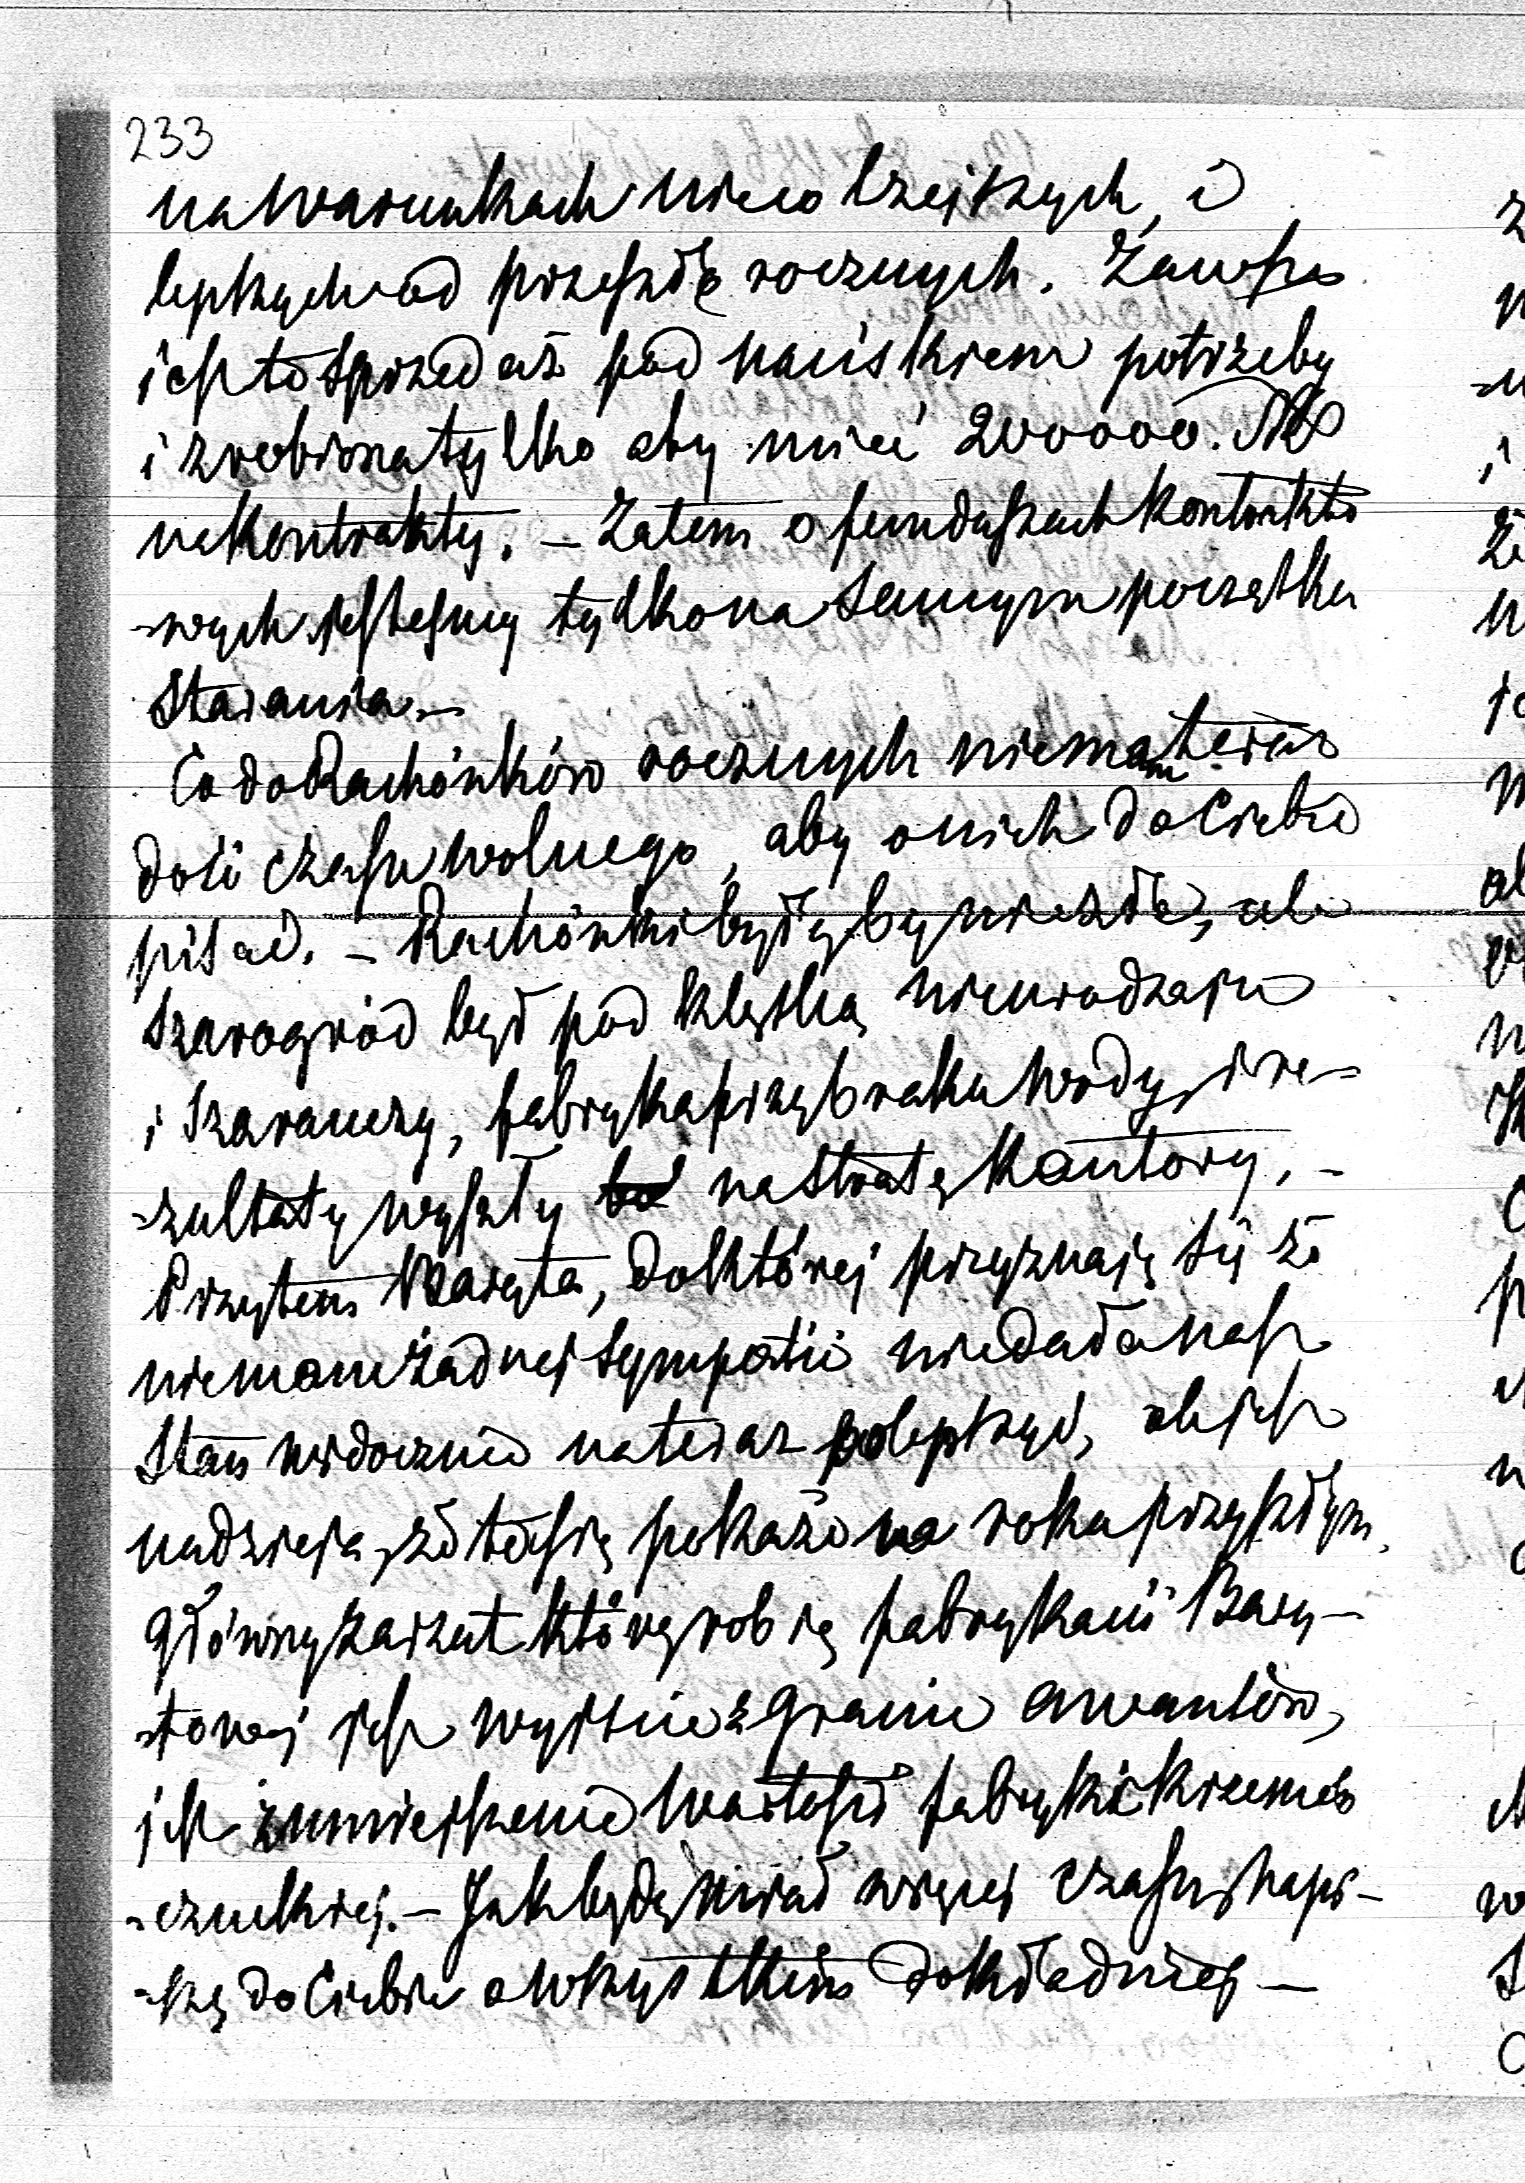 233
na warunkach nieco lżejszych, i
lepszych od przeszło rocznych. Zawsze
jest to sprzedaż pod naciskiem potrzeby
i zrobiona tylko aby mieć 200000.
na kontrakty. – Zatem o funduszach kontrakto
-wych jesteśmy tylko na samym początku
starania –
Co do Rachónków rocznych niemam teraz
dość czasu wolnego, aby o nich do Ciebie
pisać. – Rachónki byłyby nie złe, ale
Szarogród był pod klęską nieurodzaju
i Szarańczy, fabryka przy braku wody, i re-
-zultaty wyszły na stratę Kantory, –
Przytem Baryta, do której przyznaję się że
niemam żadnej sympatii niedała nasz
stan widocznie na teraz polepszyć, ale jest
nadzieja, że to się pokaże na roku przyszłym.
Główny zarzut który robię fabrykacii Bary-
-towej jest wyjście z granic awansów,
jest zmniejszenie wartości fabryki krzemie
-czuckiej. – Jak będę miał więcej czasu, napi-
-szę do Ciebie o wszystkiem dokładniej –